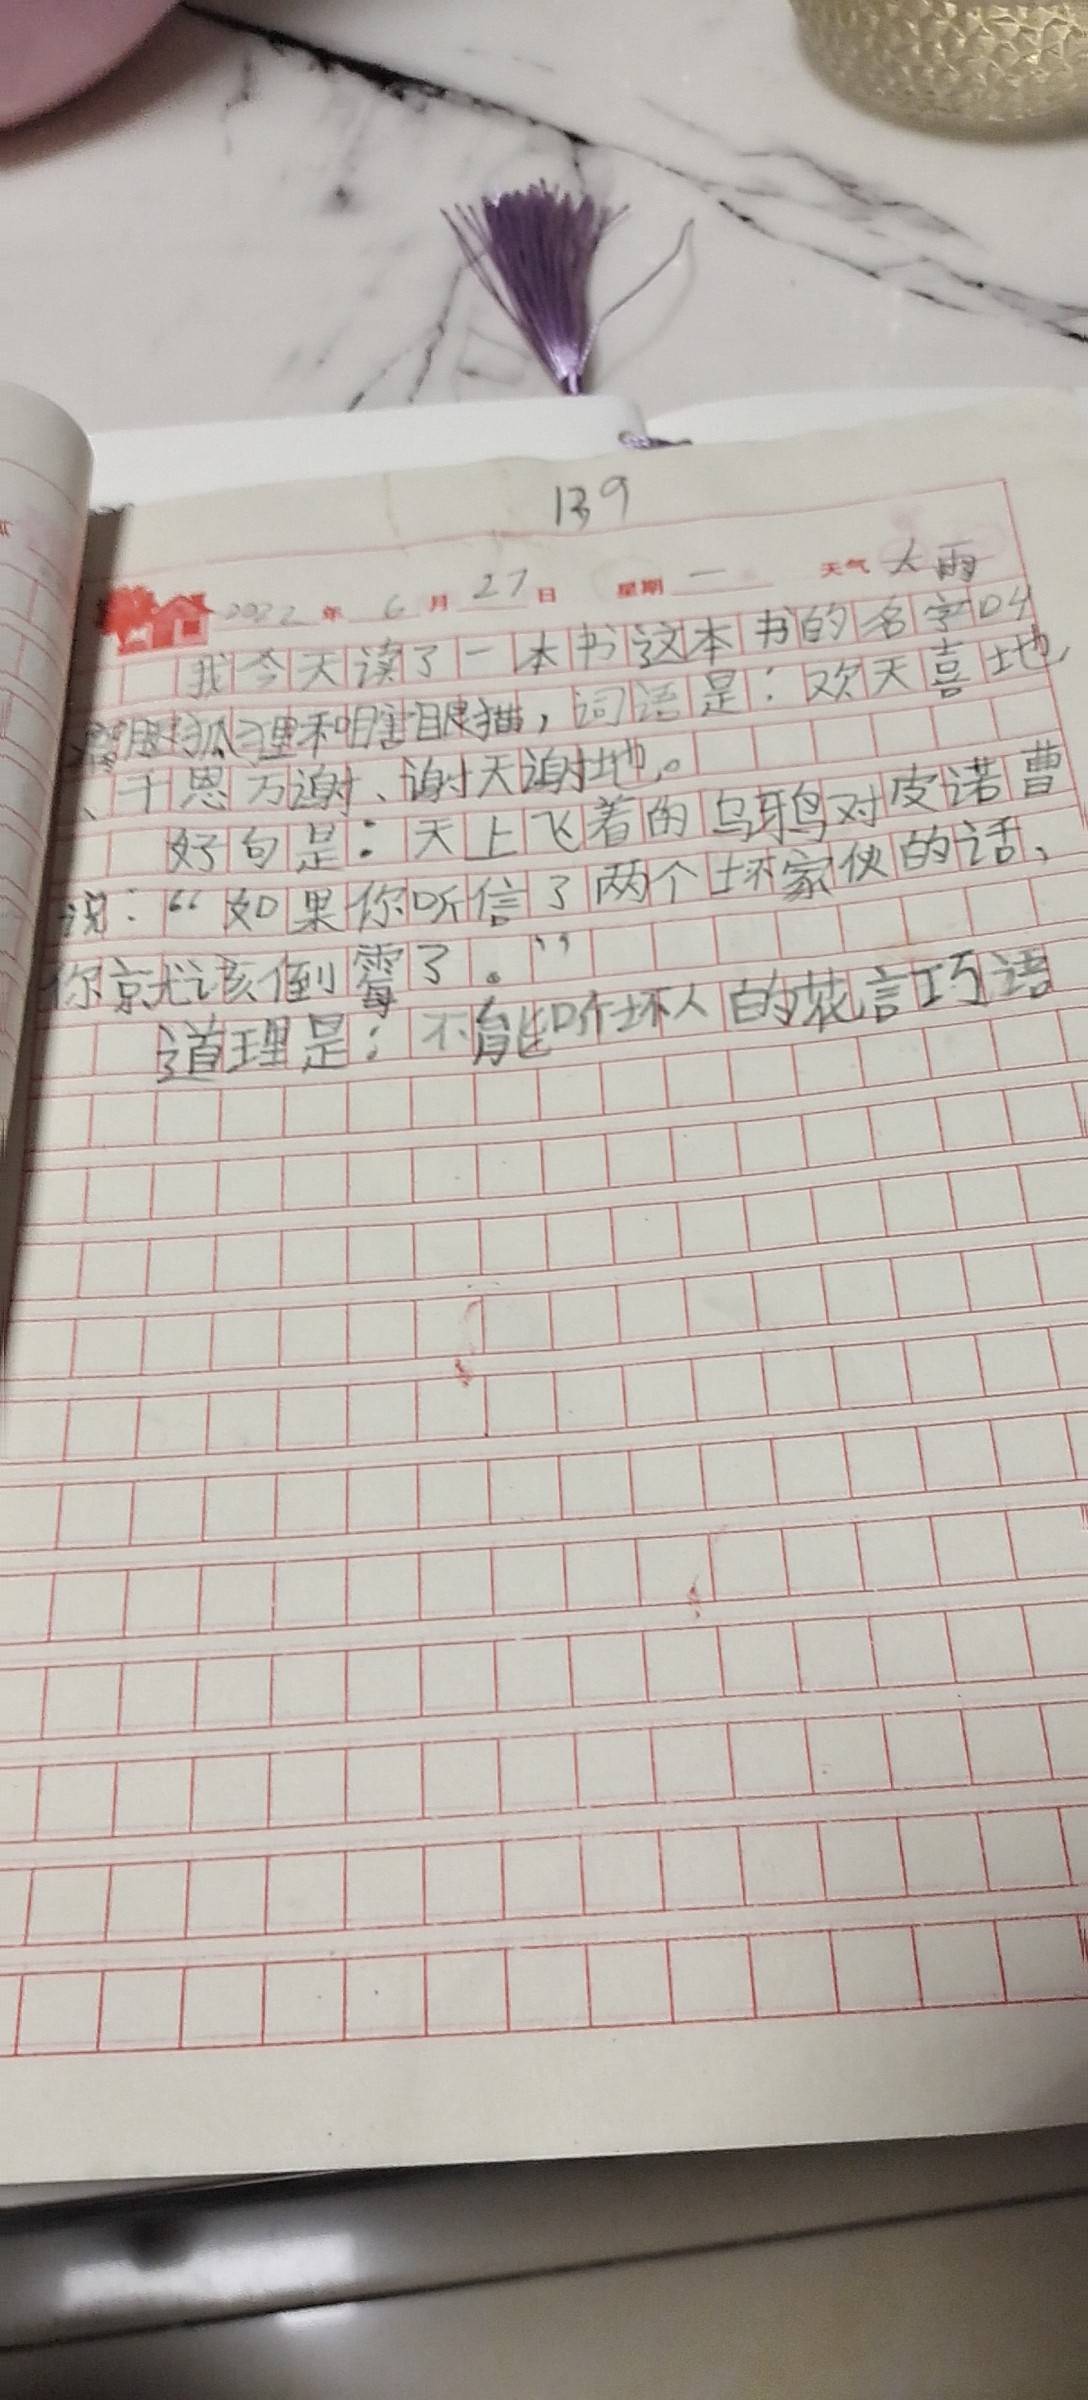 139
2022 年 6 月 27 日 星期 一 天气 大雨
我今天读了一本书这本书的名字叫
瘸腿狐狸和瞎眼猫，词语是：欢天喜地
、千恩万谢、谢天谢地。
好句是：天上飞着的乌鸦对皮诺曹
说：“如果你听信了两个坏家伙的话、
你就该倒霉了。”
道理是：不能听坏人的花言巧语